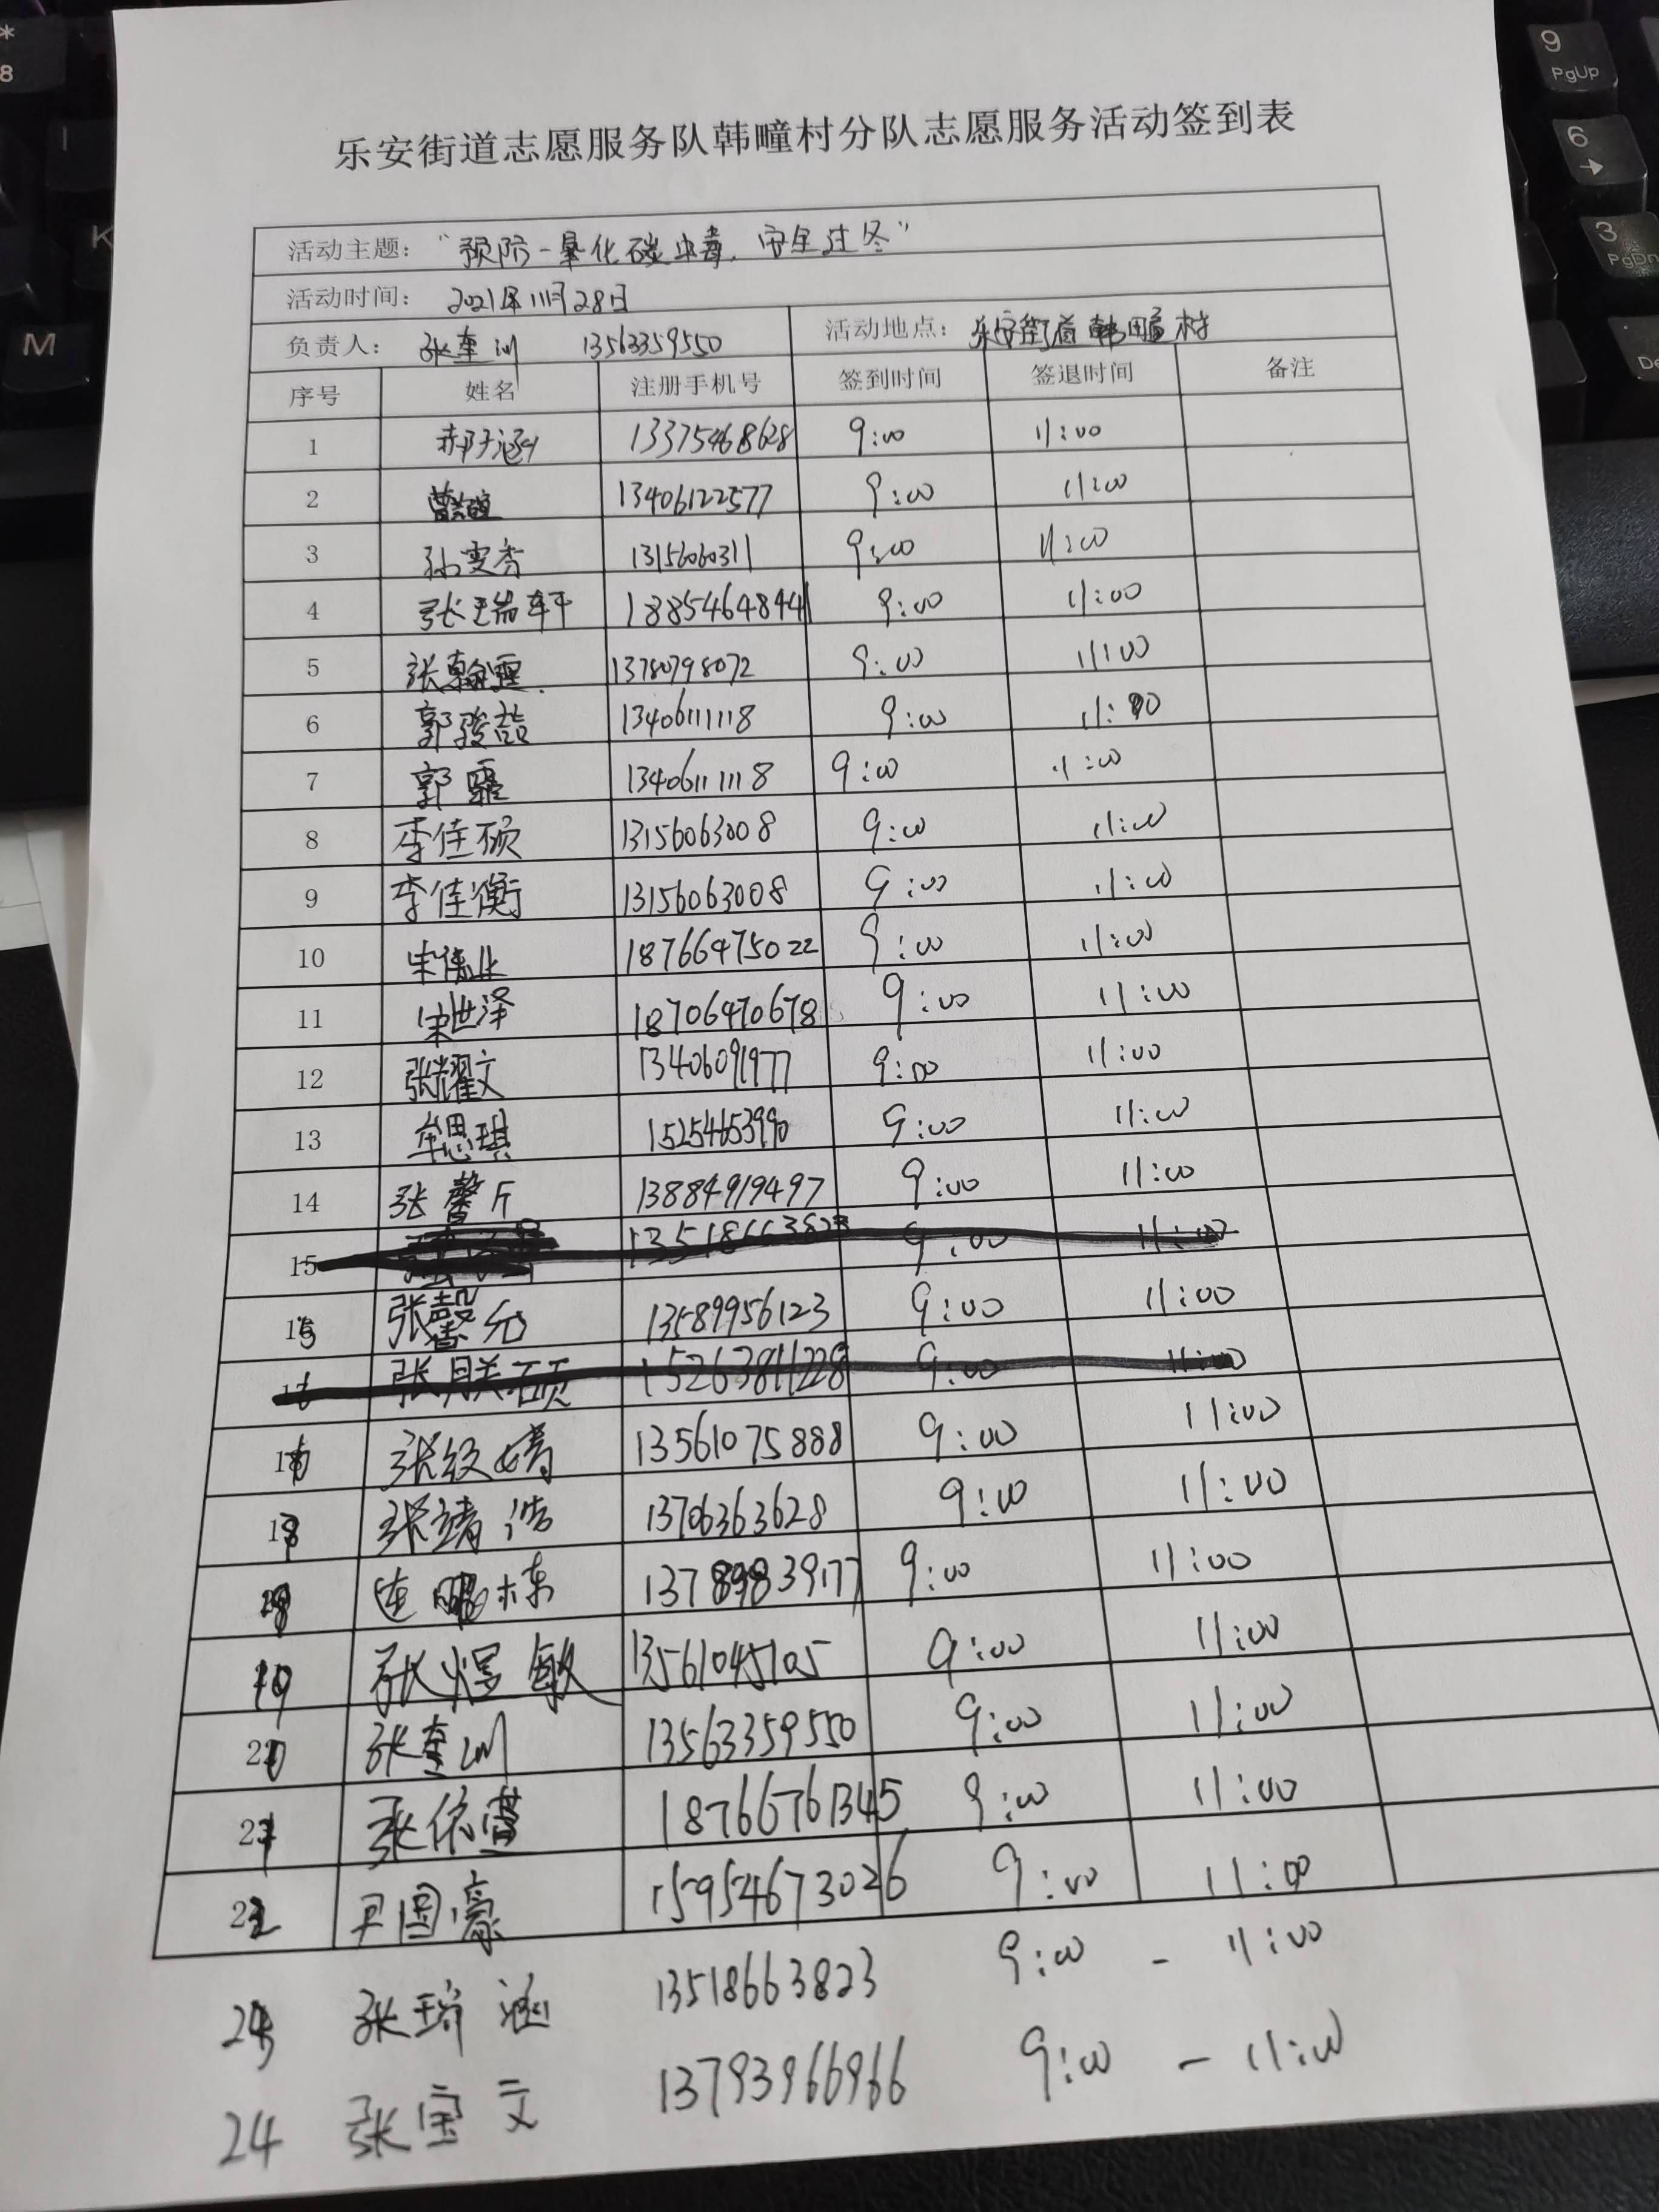 乐安街道志愿服务队韩疃村分队志愿服务活动签到表
活动主题：“预防一氧化碳中毒，安全过冬”
活动时间：2021年11月28日
负责人：张奎训 13563359550 活动地点：乐安街道韩疃村
序号 姓名 注册手机号 签到时间 签退时间 备注
1 郝子涵 13375468628 9:00 11:00
2 13406122577 9:00 11:00
3 孙雯秀 13156060311 9:00 11:00
4 张瑞轩 18854648441 9:00 11:00
5 张翰霆 13780798072 9:00 11:00
6 郭骏喆 13406111118 9:00 11:00
7 郭 13406111118 9:00 11:00
8 李佳硕 13156063008 9:00 11:00
9 李佳衡 13156063008 9:00 11:00
10 宋伟业 18766475022 9:00 11:00
11 宋世泽 18706470678 9:00 11:00
12 张耀文 13406091977 9:00 11:00
13 牟思琪 15254653990 9:00 11:00
14 张馨斤 13884919497 9:00 11:00
15 13518663823 9:00 11:00
15 张馨允 13589956123 9:00 11:00
张朕硕 15263811228 9:00 11:00
张纹婧 13561075888 9:00 11:00
18 张靖浩 13706363628 9:00 11:00
连鹏栋 13789839177 9:00 11:00
19 张煜敏 13561045105 9:00 11:00
20 张奎训 13563359550 9:00 11:00
21 张依萱 18766761345 9:00 11:00
22 尹国豪 15954673026 9:00 11:00
张琦涵 13518663823 9:00 - 11:00
24 张宝文 13793966966 9:00 - 11:00